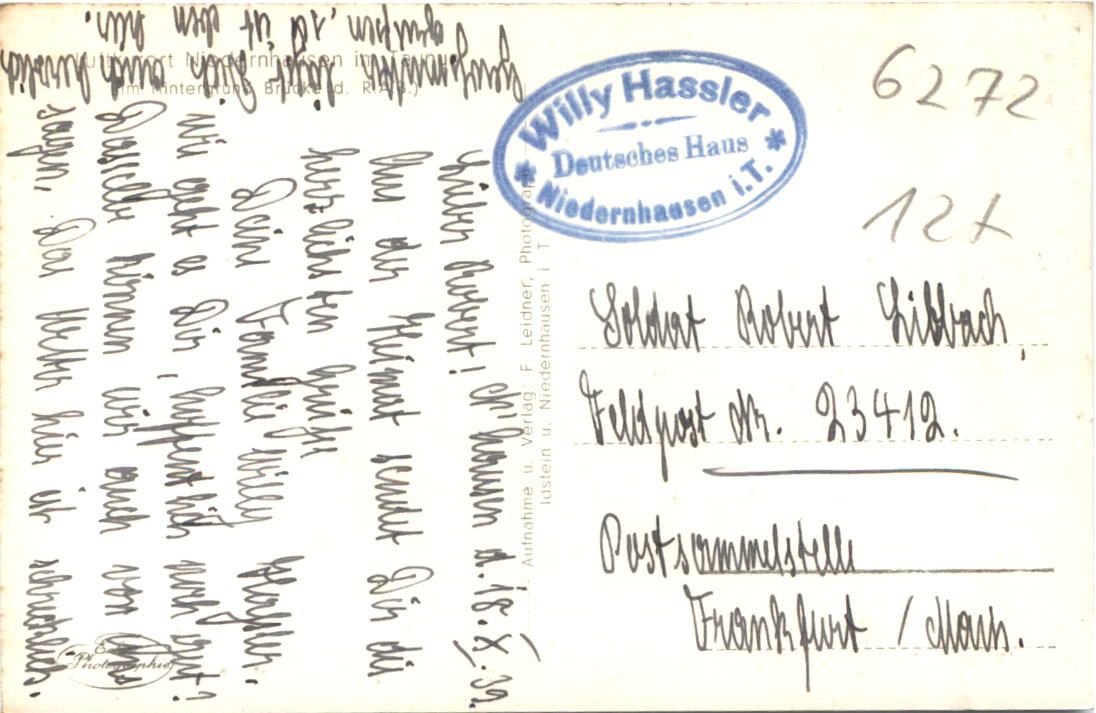 Luftkurort Niedernhausen im Taunus
(Im Hintergrund Brücke d. R.A.B.)
Lieber Robert! N'hausen d. 18.X.39.
Aus der Heimat sendet Dir die
herzlichsten Grüße
Deine Familie Willy Hassler.
Wie geht es Dir, hoffentlich noch gut?
Dasselbe können wir auch von uns
sagen, Das Wetter hier ist
Dich auch herzlich
grüßen, ist
Echte Photographie
Aufnahme u. Verlag: F. Leidner,
Idstein u. Niedernhausen i. T
Willy Hassler
Deutsches Haus
Niedernhausen i.T.
6272
12x
Soldat Robert Libbach,
Feldpost Nr. 23412.
Postsammelstelle
Frankfurt / Main.